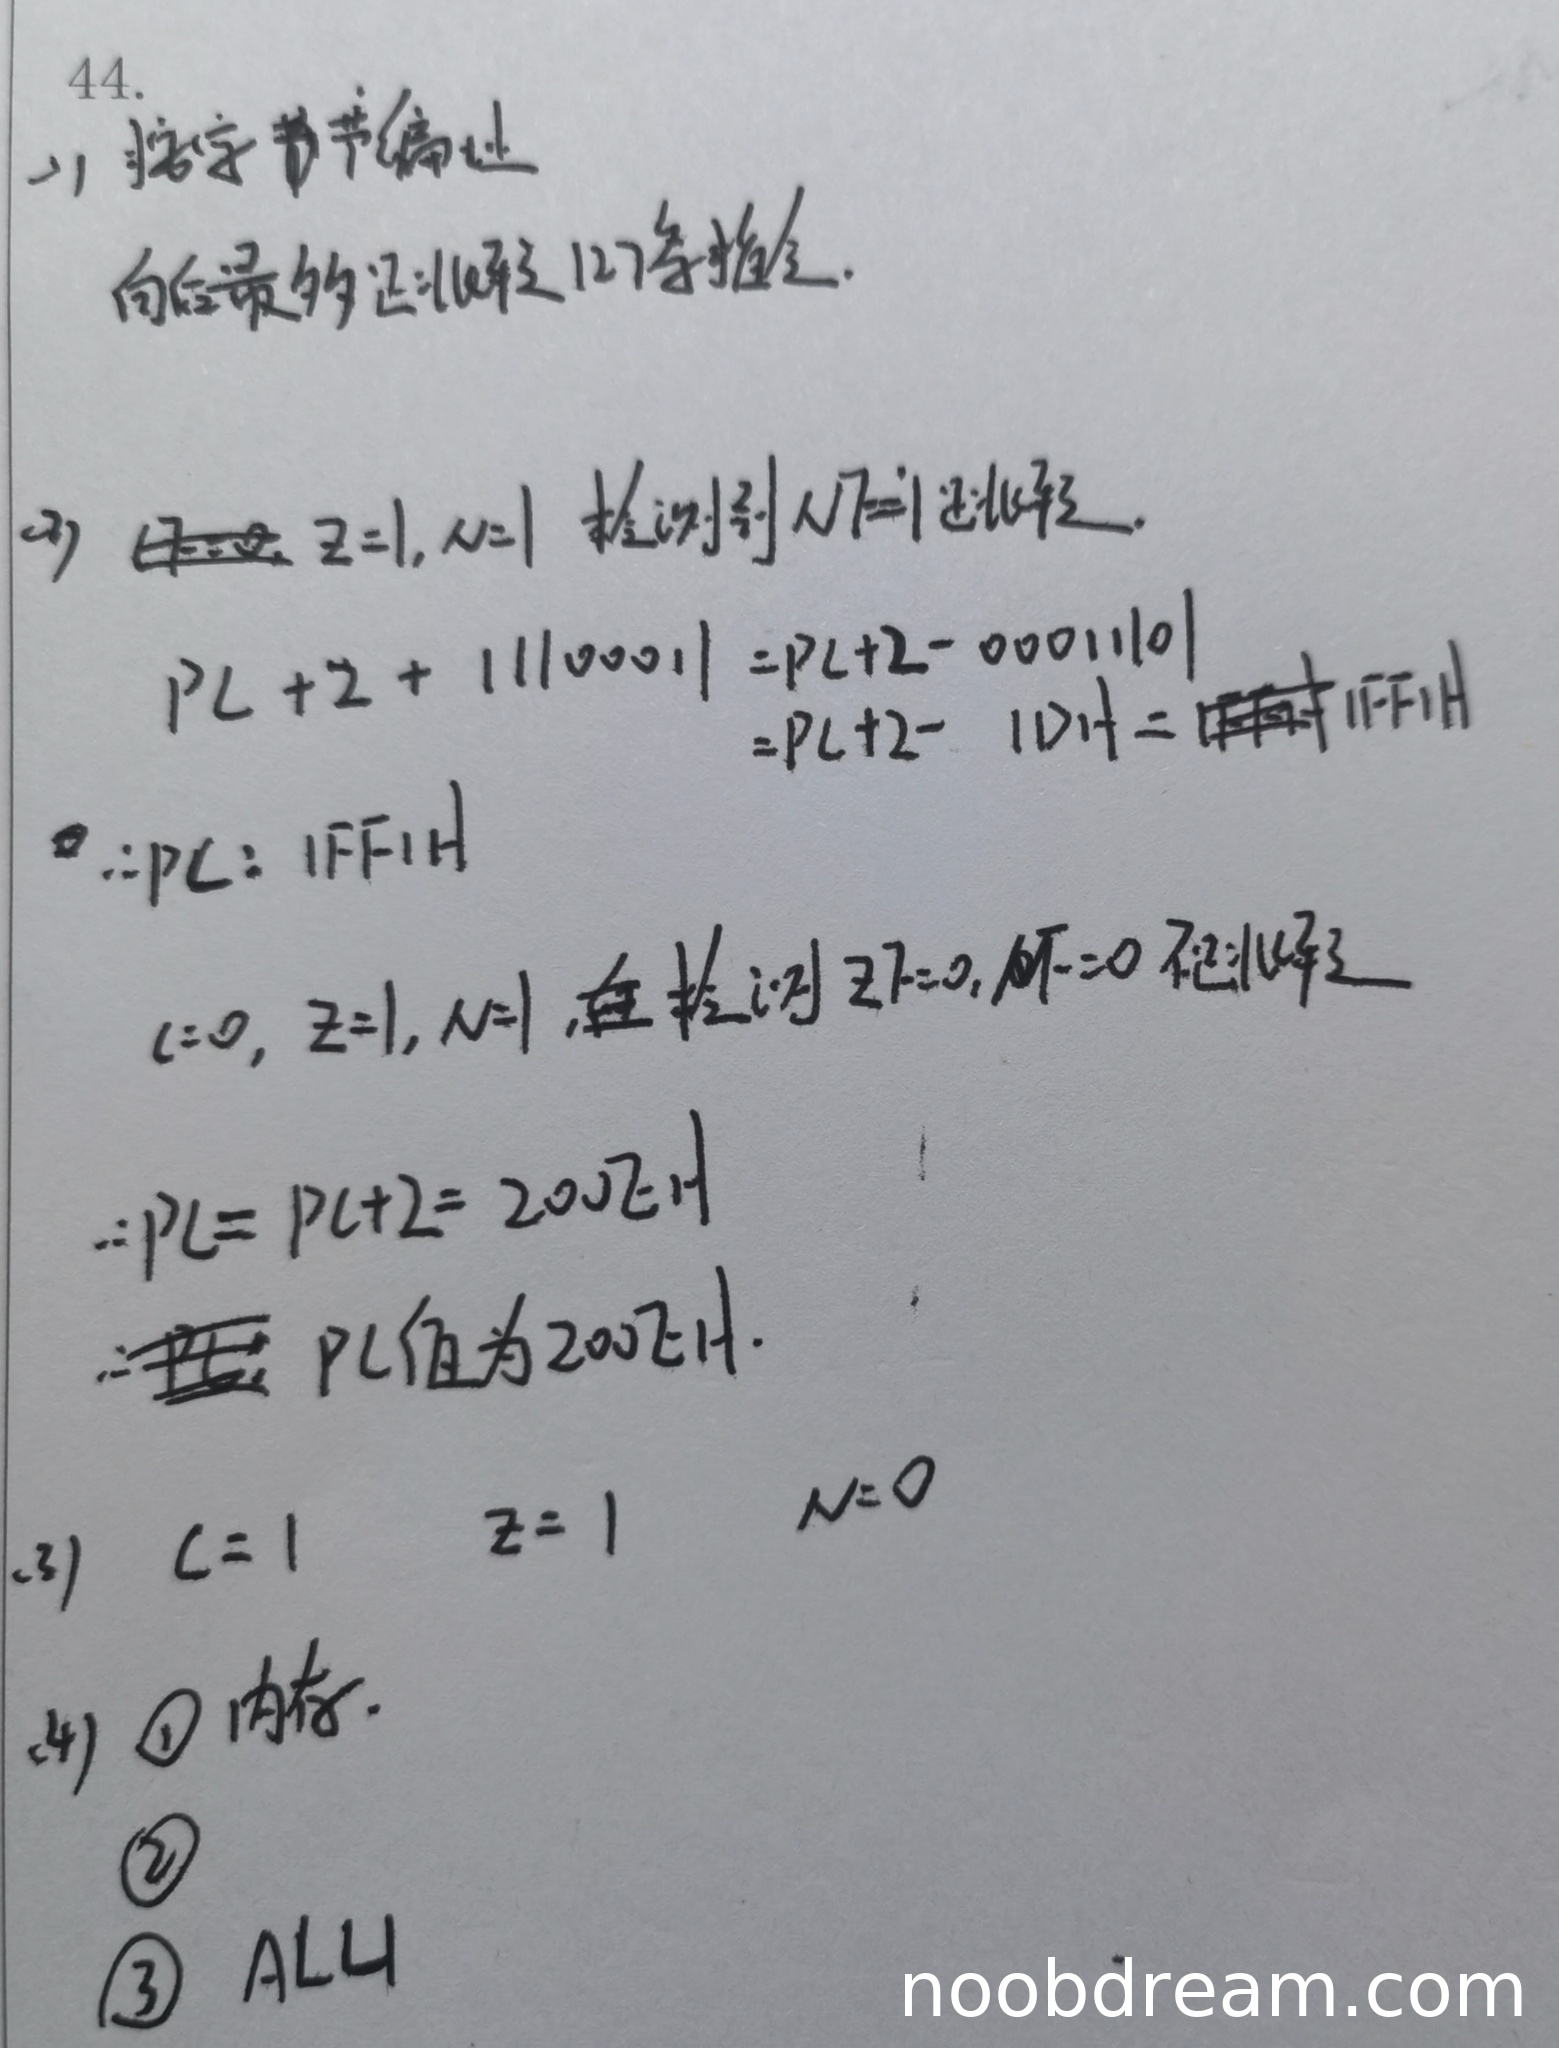 44.
(1) 按字节编址
向后最多还跳转127条指令.
(2) Z=1, N=1 检测到 NF=1 还跳转.
PC+2+11100011 =PC+2-00011101
=PC+2- 1DH = 1FF1H
∴PC: 1FF1H
C=0, Z=1, N=1, 检测 ZF=0, NF=0 不跳转
∴PC= PC+2= 200EH
∴ PC值为200EH.
(3) C=1 Z=1 N=0
(4) ① 内存.
②
③ ALU
noobdream.com